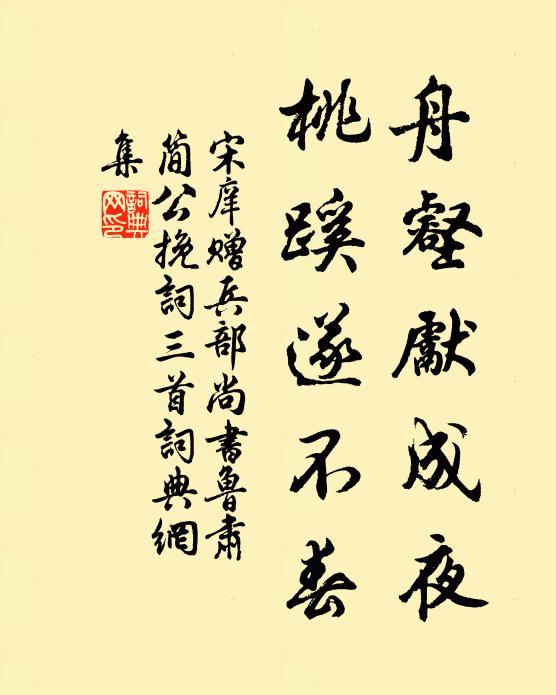 舟壑獻成夜
桃蹊遂不春
宋庠贈兵部尚書魯肅
簡公挽詞三首詞典網
集
詞典
网印